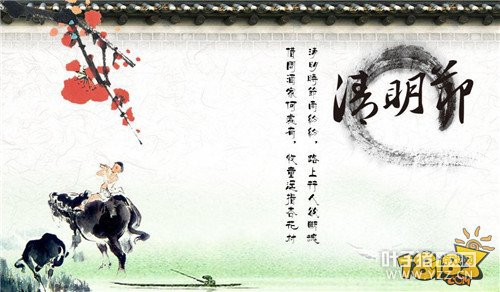 清明節
清明時節雨紛紛，路上行人欲斷魂
借問酒家何處有，牧童遙指杏花村